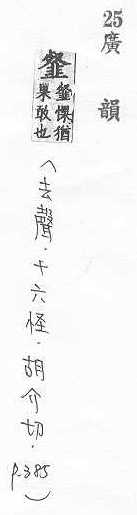 25廣韻
韰韰惈猶果敢也
(去聲.十六怪.胡介切.p.385)